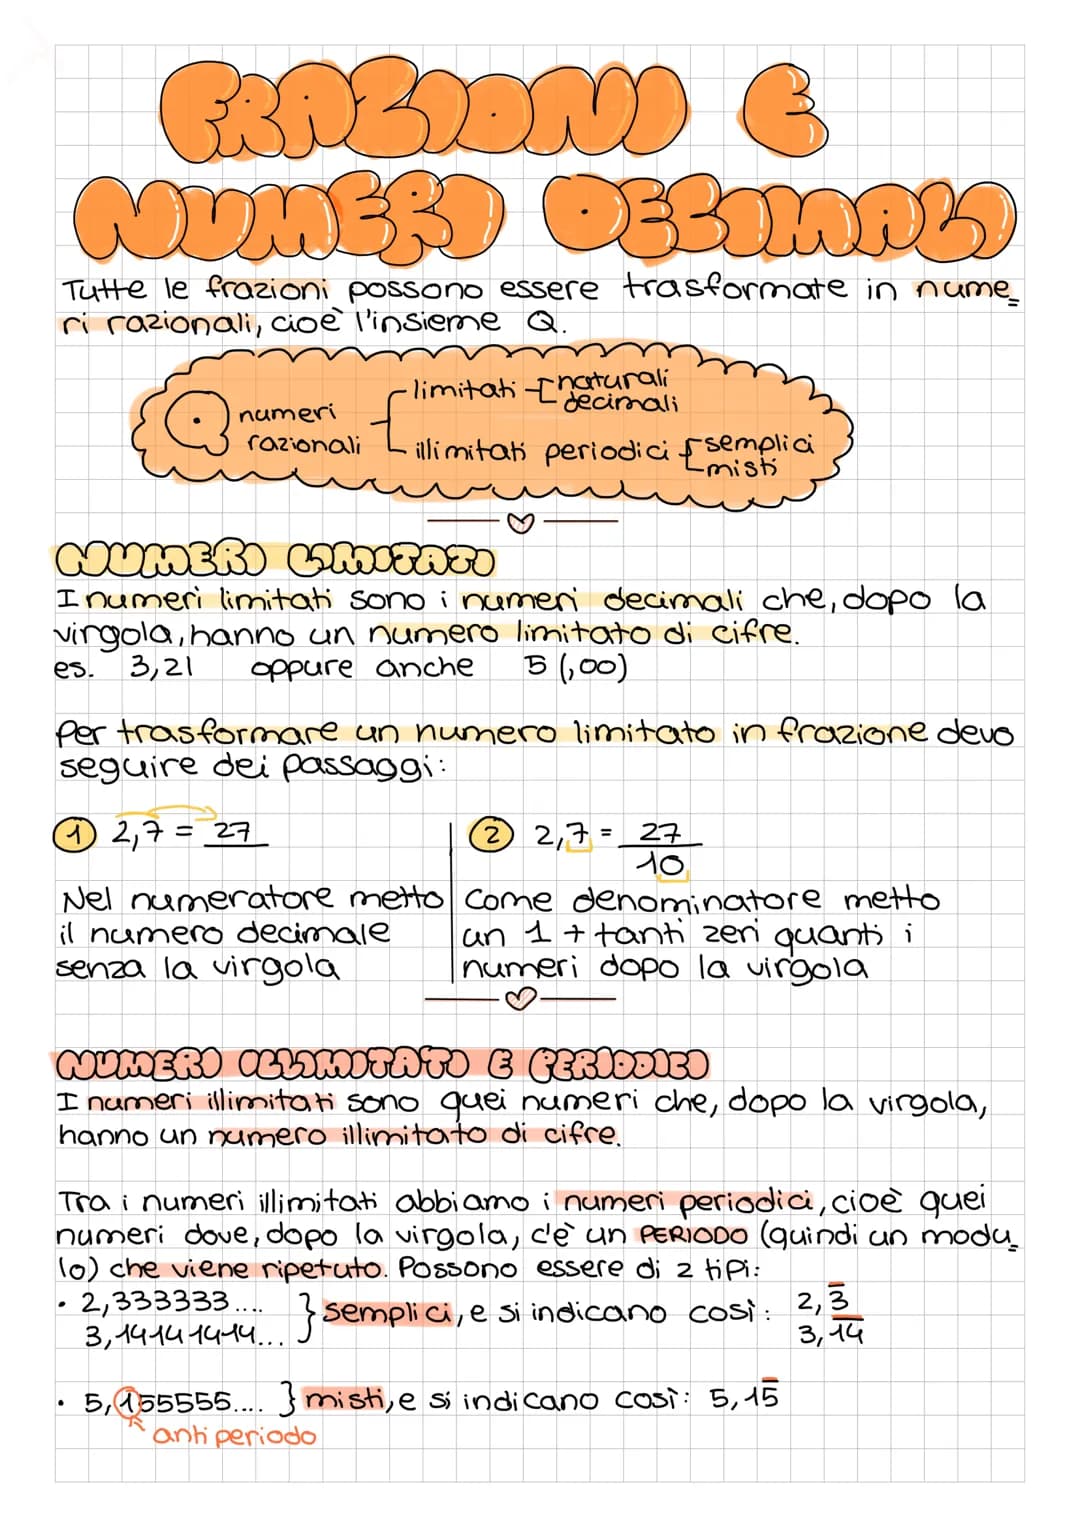 FRAZIONI E
NUMERI DECIMALI
Tutte le frazioni possono essere trasformate in nume=
ri razionali, cioè l'insieme Q.
limitati naturali
decimali
Q numeri
razionali
illimitati periodici semplici
misti
NUMERI LIMITATI
I numeri limitati sono i numeri decimali che, dopo la
virgola, hanno un numero limitato di cifre.
es. 3,21 oppure anche 5 (,00)
Per trasformare un numero limitato in frazione devo
seguire dei passaggi:
1 2,7 = 27
Nel numeratore metto
il numero decimale
senza la virgola
2 2,7 = 27
10
Come denominatore metto
un 1 + tanti zeri quanti i
numeri dopo la virgola
NUMERI ILLIMITATI E PERIODICI
I numeri illimitati sono quei numeri che, dopo la virgola,
hanno un numero illimitato di cifre.
Tra i numeri illimitati abbiamo i numeri periodici, cioè quei
numeri dove, dopo la virgola, c'è un PERIODO (quindi un modu=
lo) che viene ripetuto. Possono essere di 2 tipi:
• 2,333333.... } semplici, e si indicano così: 2,3̅
3,14141414... 3,1̅4̅
• 5,155555.... } misti, e si indicano così: 5,15̅
antiperiodo